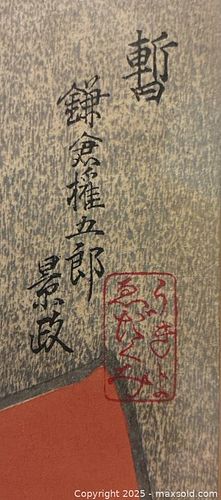 暫
鎌倉権五郎
景政
Copyright © 2025 - maxsold.com